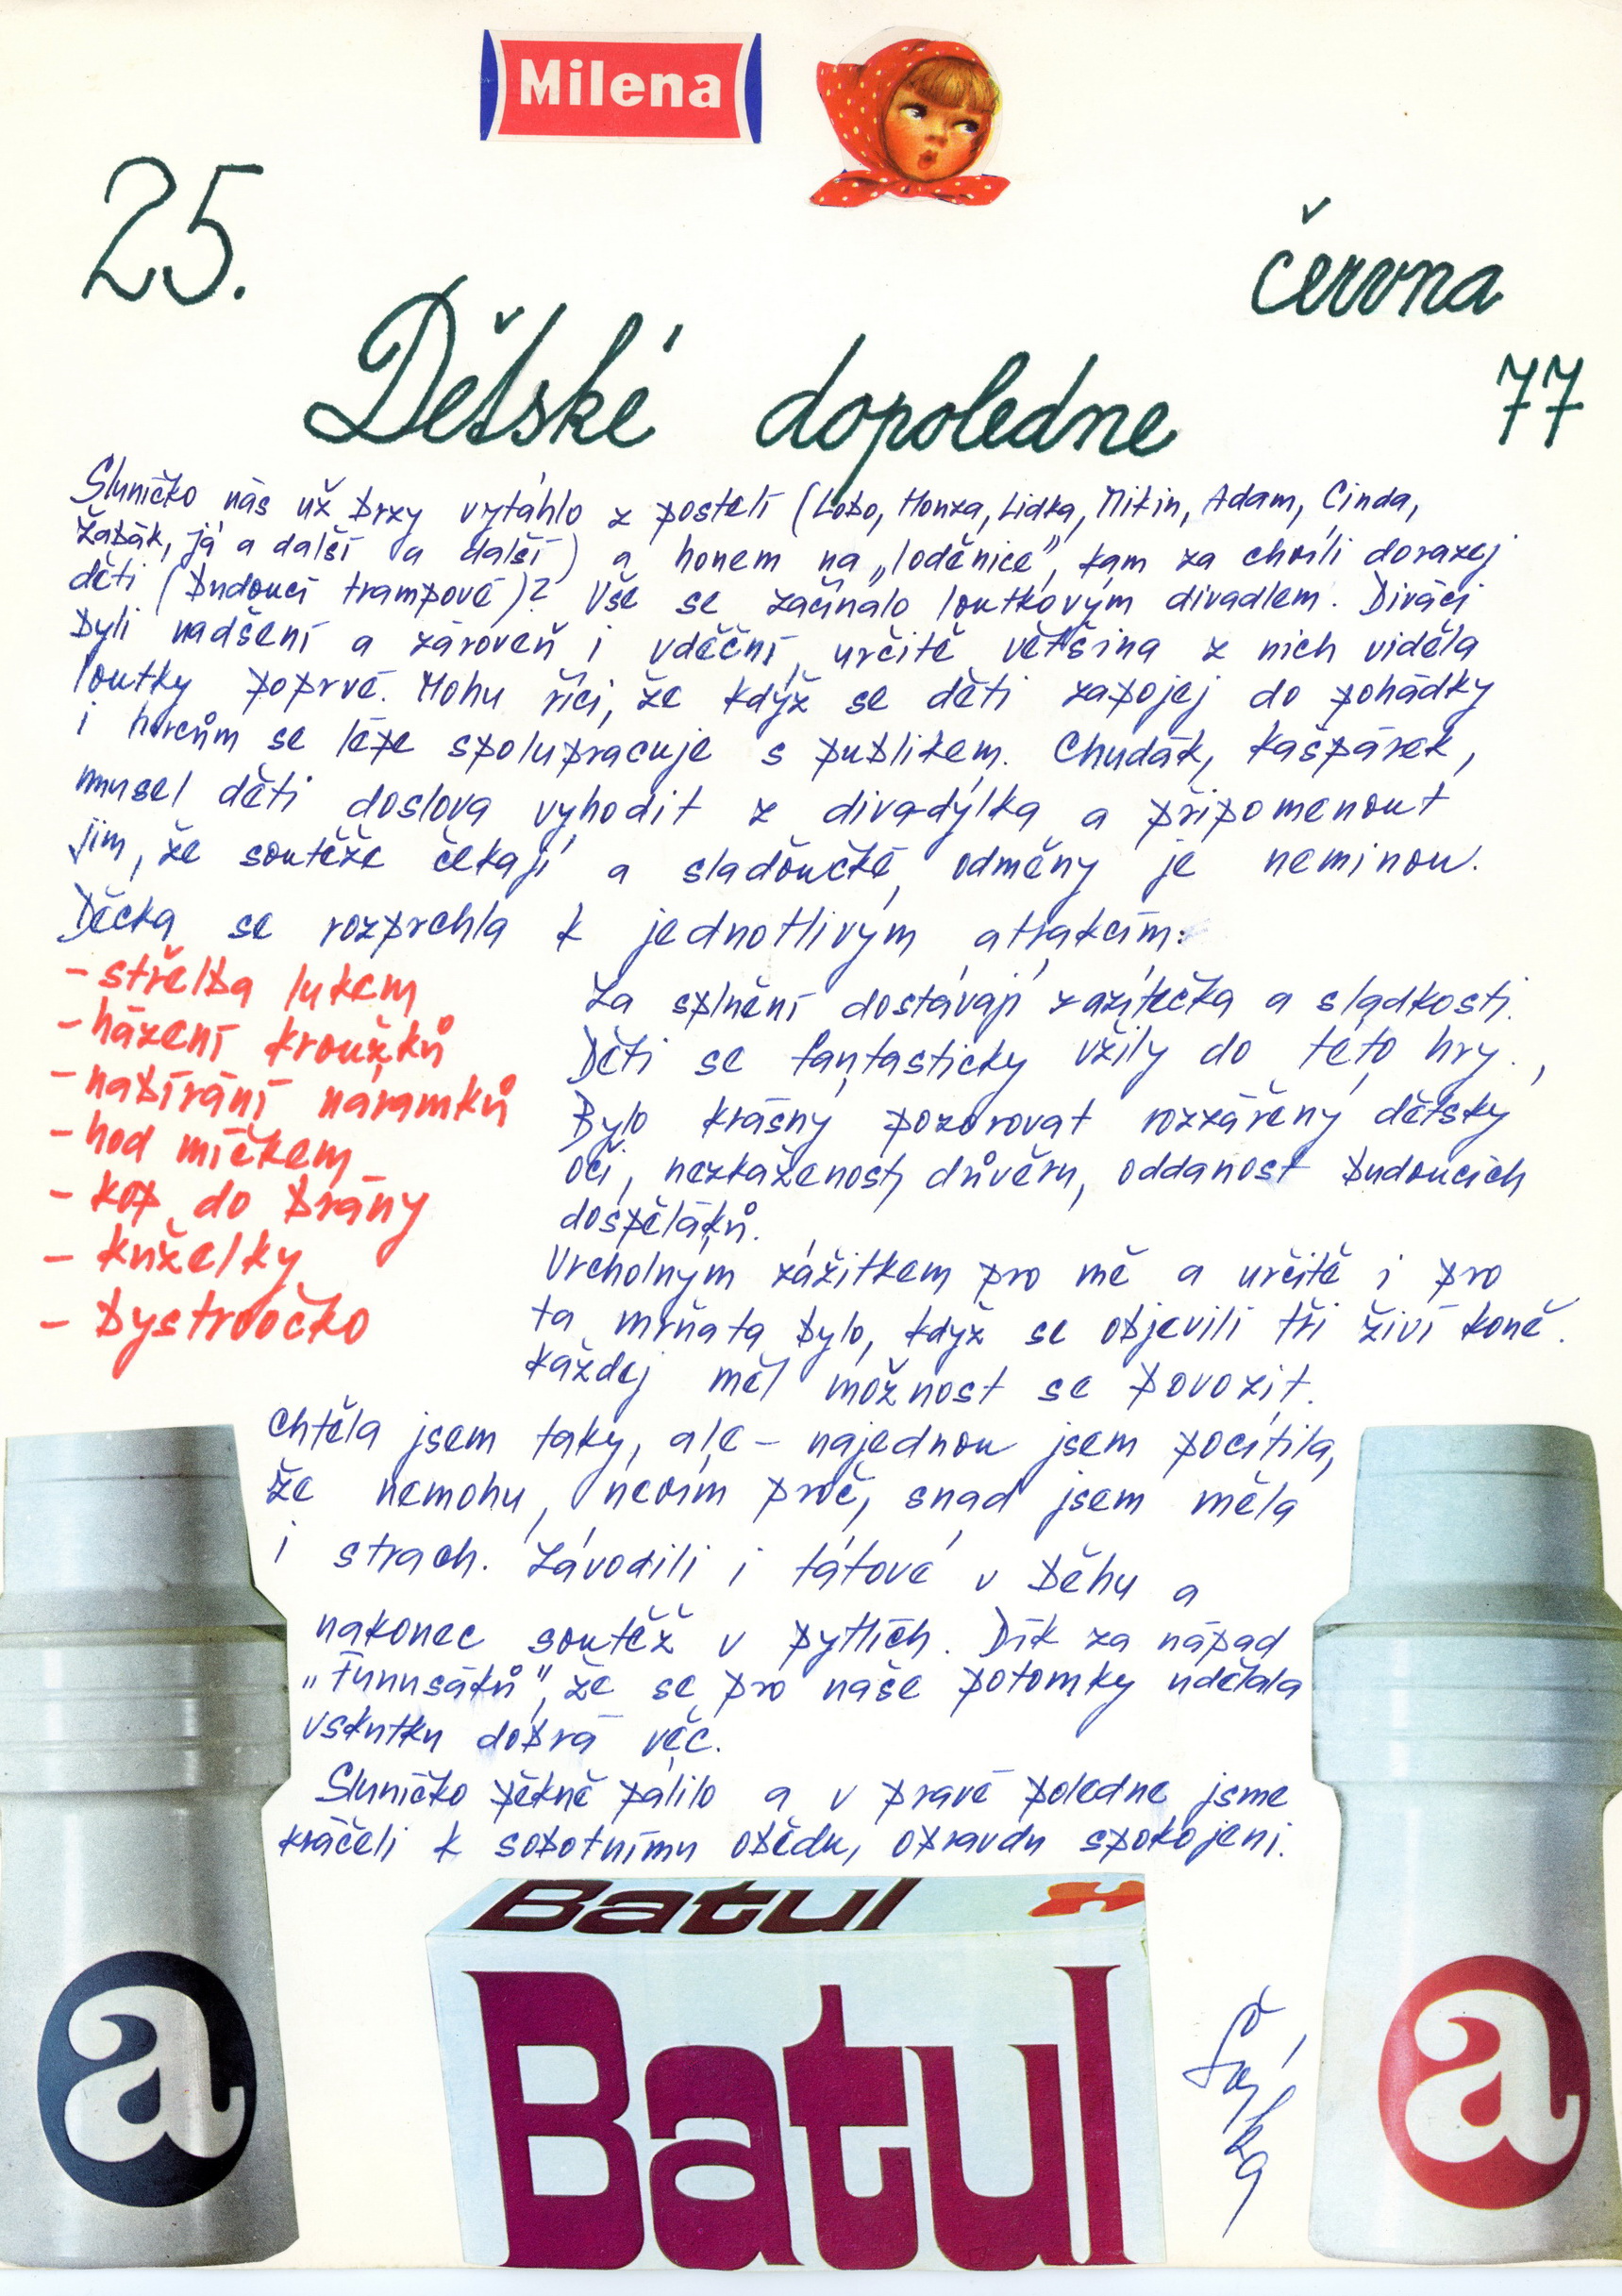 Milena
25.
června
77
Dětské dopoledne
Sluníčko nás už brzy vytáhlo z postelí (Lobo, Honza, Lidka, Mikin, Adam, Cinda,
Žabák, já a další a další) a honem na „loděnice", kam za chvíli dorazej
děti (budoucí trampové)? Vše se začínalo loutkovým divadlem. Diváci
byli nadšení a zároveň i vděční, určitě většina z nich viděla
loutky poprvé. Mohu říci, že když se děti zapojej do pohádky
i hercům se lépe spolupracuje s publikem. Chudák, Kašpárek,
musel děti doslova vyhodit z divadýlka a připomenout
jim, že soutěže čekají a slaďoučké odměny je neminou.
Děcka se rozprchla k jednotlivým atrakcím:
- střelba lukem
- házení kroužků
- nabírání náramků
- hod míčkem
- kop do brány
- kuželky
- bystroočko
Za splnění dostávají razítečka a sladkosti.
Děti se fantasticky vžily do této hry.,
Bylo krásný pozorovat rozzářený dětský
oči, nezkaženost, důvěru, oddanost budoucích
dospěláků.
Vrcholným zážitkem pro mě a určitě i pro
ta mrňata bylo, když se objevili tři živí koně.
Každej měl možnost se povozit.
Chtěla jsem taky, ale - najednou jsem pocítila,
že nemohu, nevím proč, snad jsem měla
i strach. Závodili i tátové v běhu a
nakonec soutěž v pytlích. Dík za nápad
„Funusáků", že se pro naše potomky udělala
vskutku dobrá věc.
Sluníčko pěkně pálilo a v pravé poledne jsme
kráčeli k sobotnímu obědu, opravdu spokojeni.
Batul
Batul
a
a